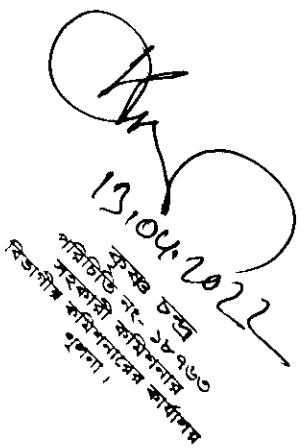 13.04.2022
কৃষ্ণ চন্দ্র
পরিচিতি নং- ১৮৭৬৩
সহকারী কমিশনার
বিভাগীয় কমিশনারের কার্যালয়
খুলনা।